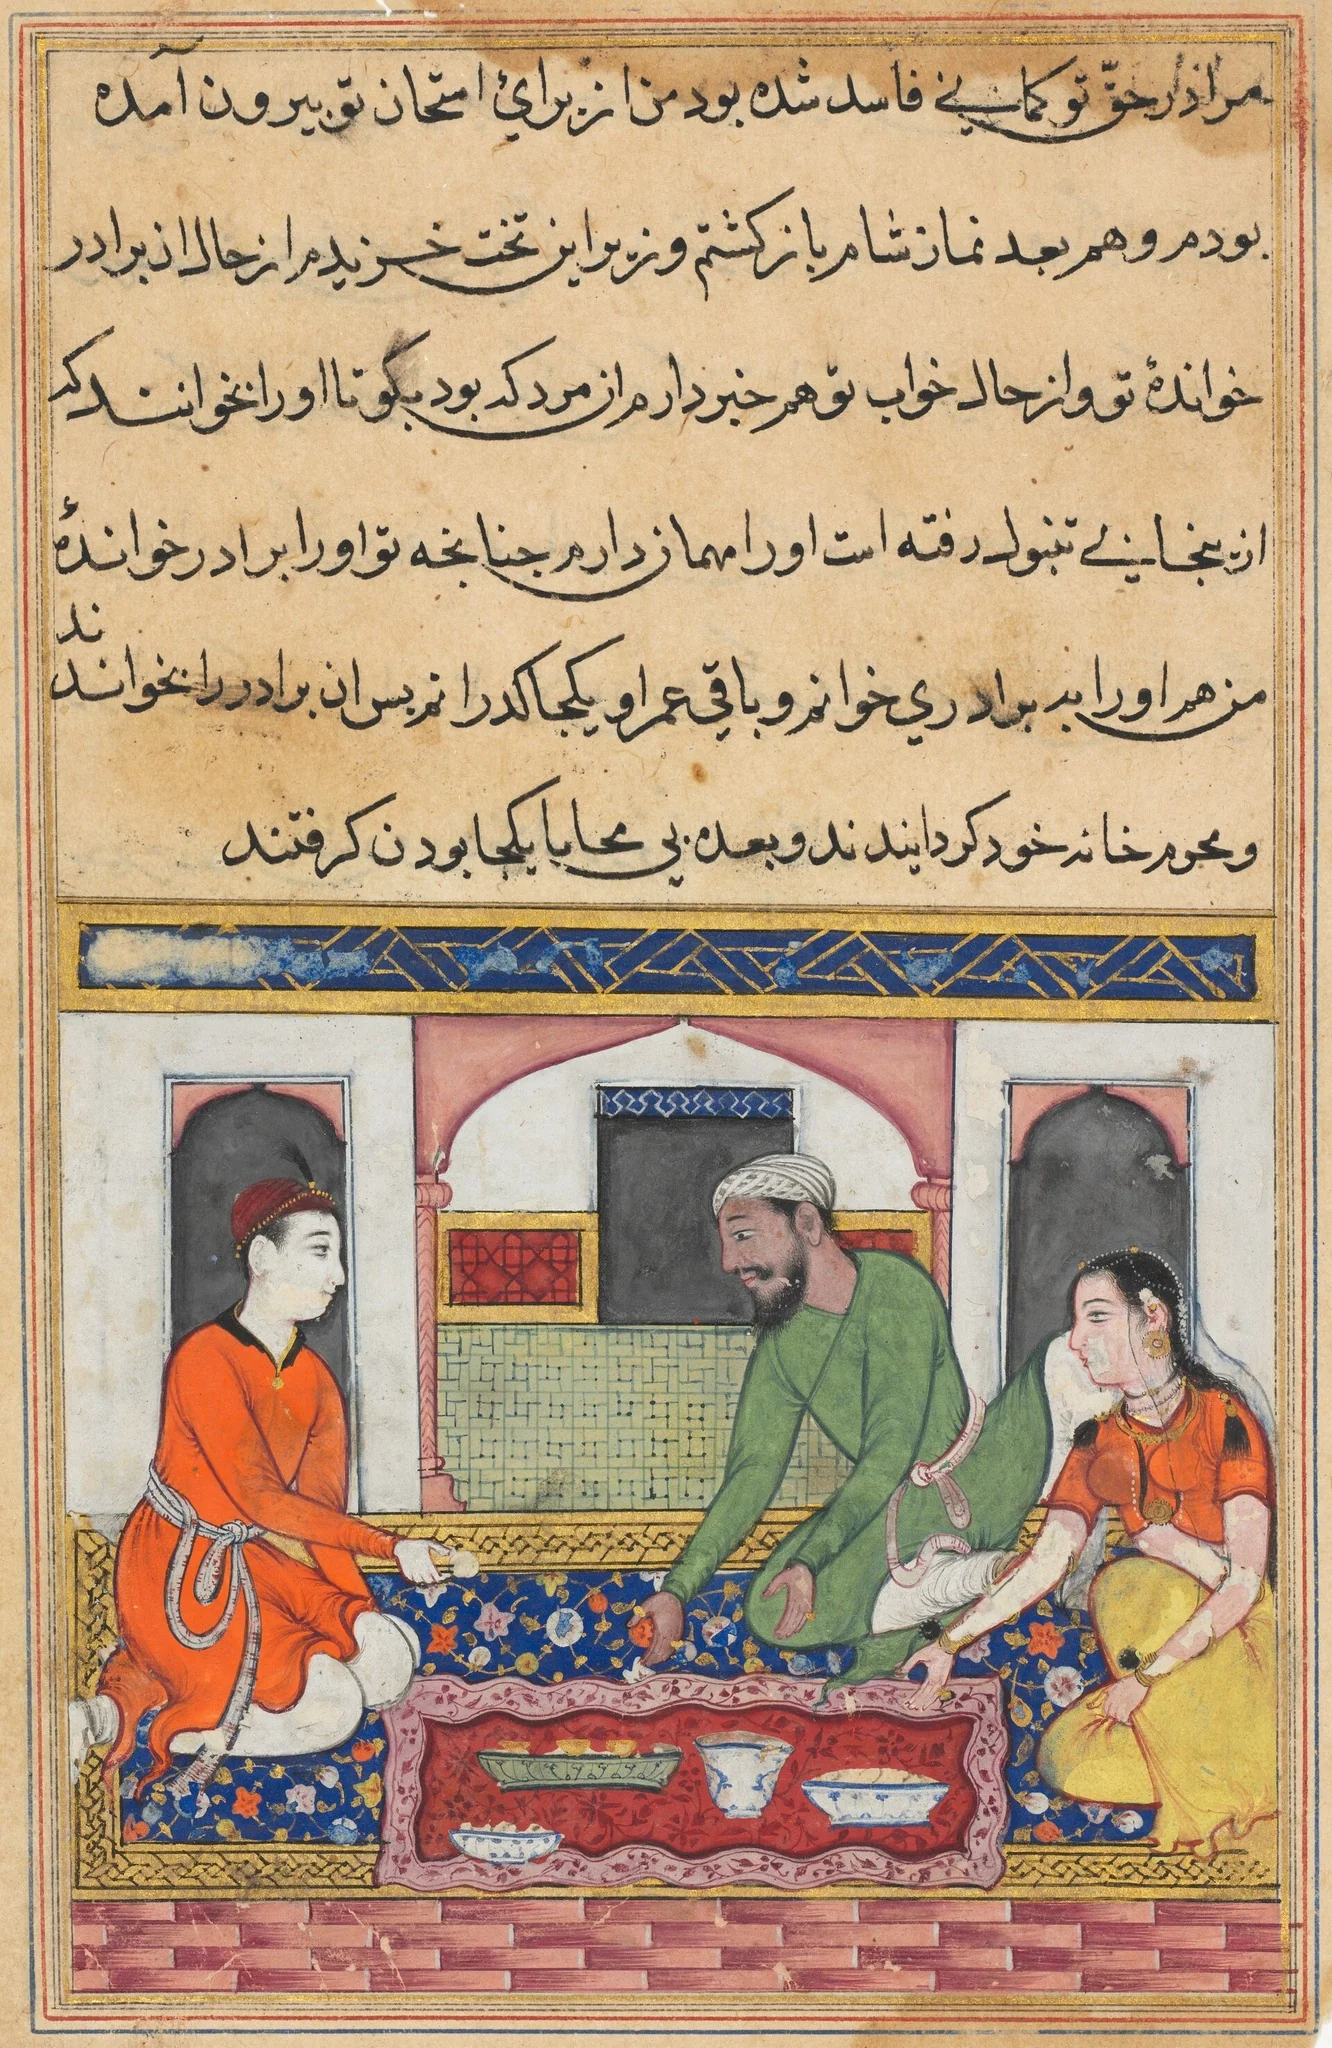 مرا در حق تو کمانی فاسد شده بود من از برای امتحان تو بیرون آمده
بودم و هم بعد نماز شام باز کشتم و زیر این تخت خزیدم از حال ان برادر
خواندهٔ تو و از حال خواب تو هم خبر دارم ان مرد که بود بکو تا او را بخوانند که
از بی تنبول رفته است او را مهمان دارم چنانچه تو او را برادر خواندهٔ
من هم او را به برادری خوانم و باقی عمر او یکجا کدرانم بس ان برادر را بخواندند
و محرم خانه خود کردانیدند و بعده بی محابا یکجا بودن کرفتند